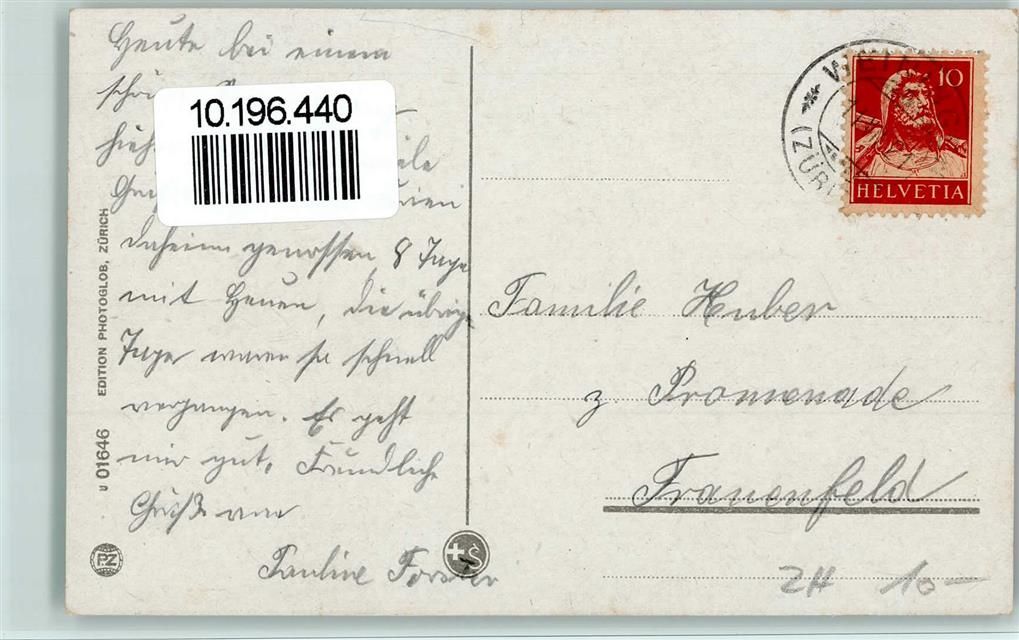 Heute bei einem
10.196.440
daheim genossen, 8 Tage
mit Heuen, die übrige
Tage waren so schnell
vergangen. Es geht
mir gut. Freundliche
Grüße von
Pauline Forster
EDITION PHOTOGLOB, ZÜRICH
U 01646
PZ
10
HELVETIA
Familie Huber
z. Promenade
Frauenfeld
ZH 10-